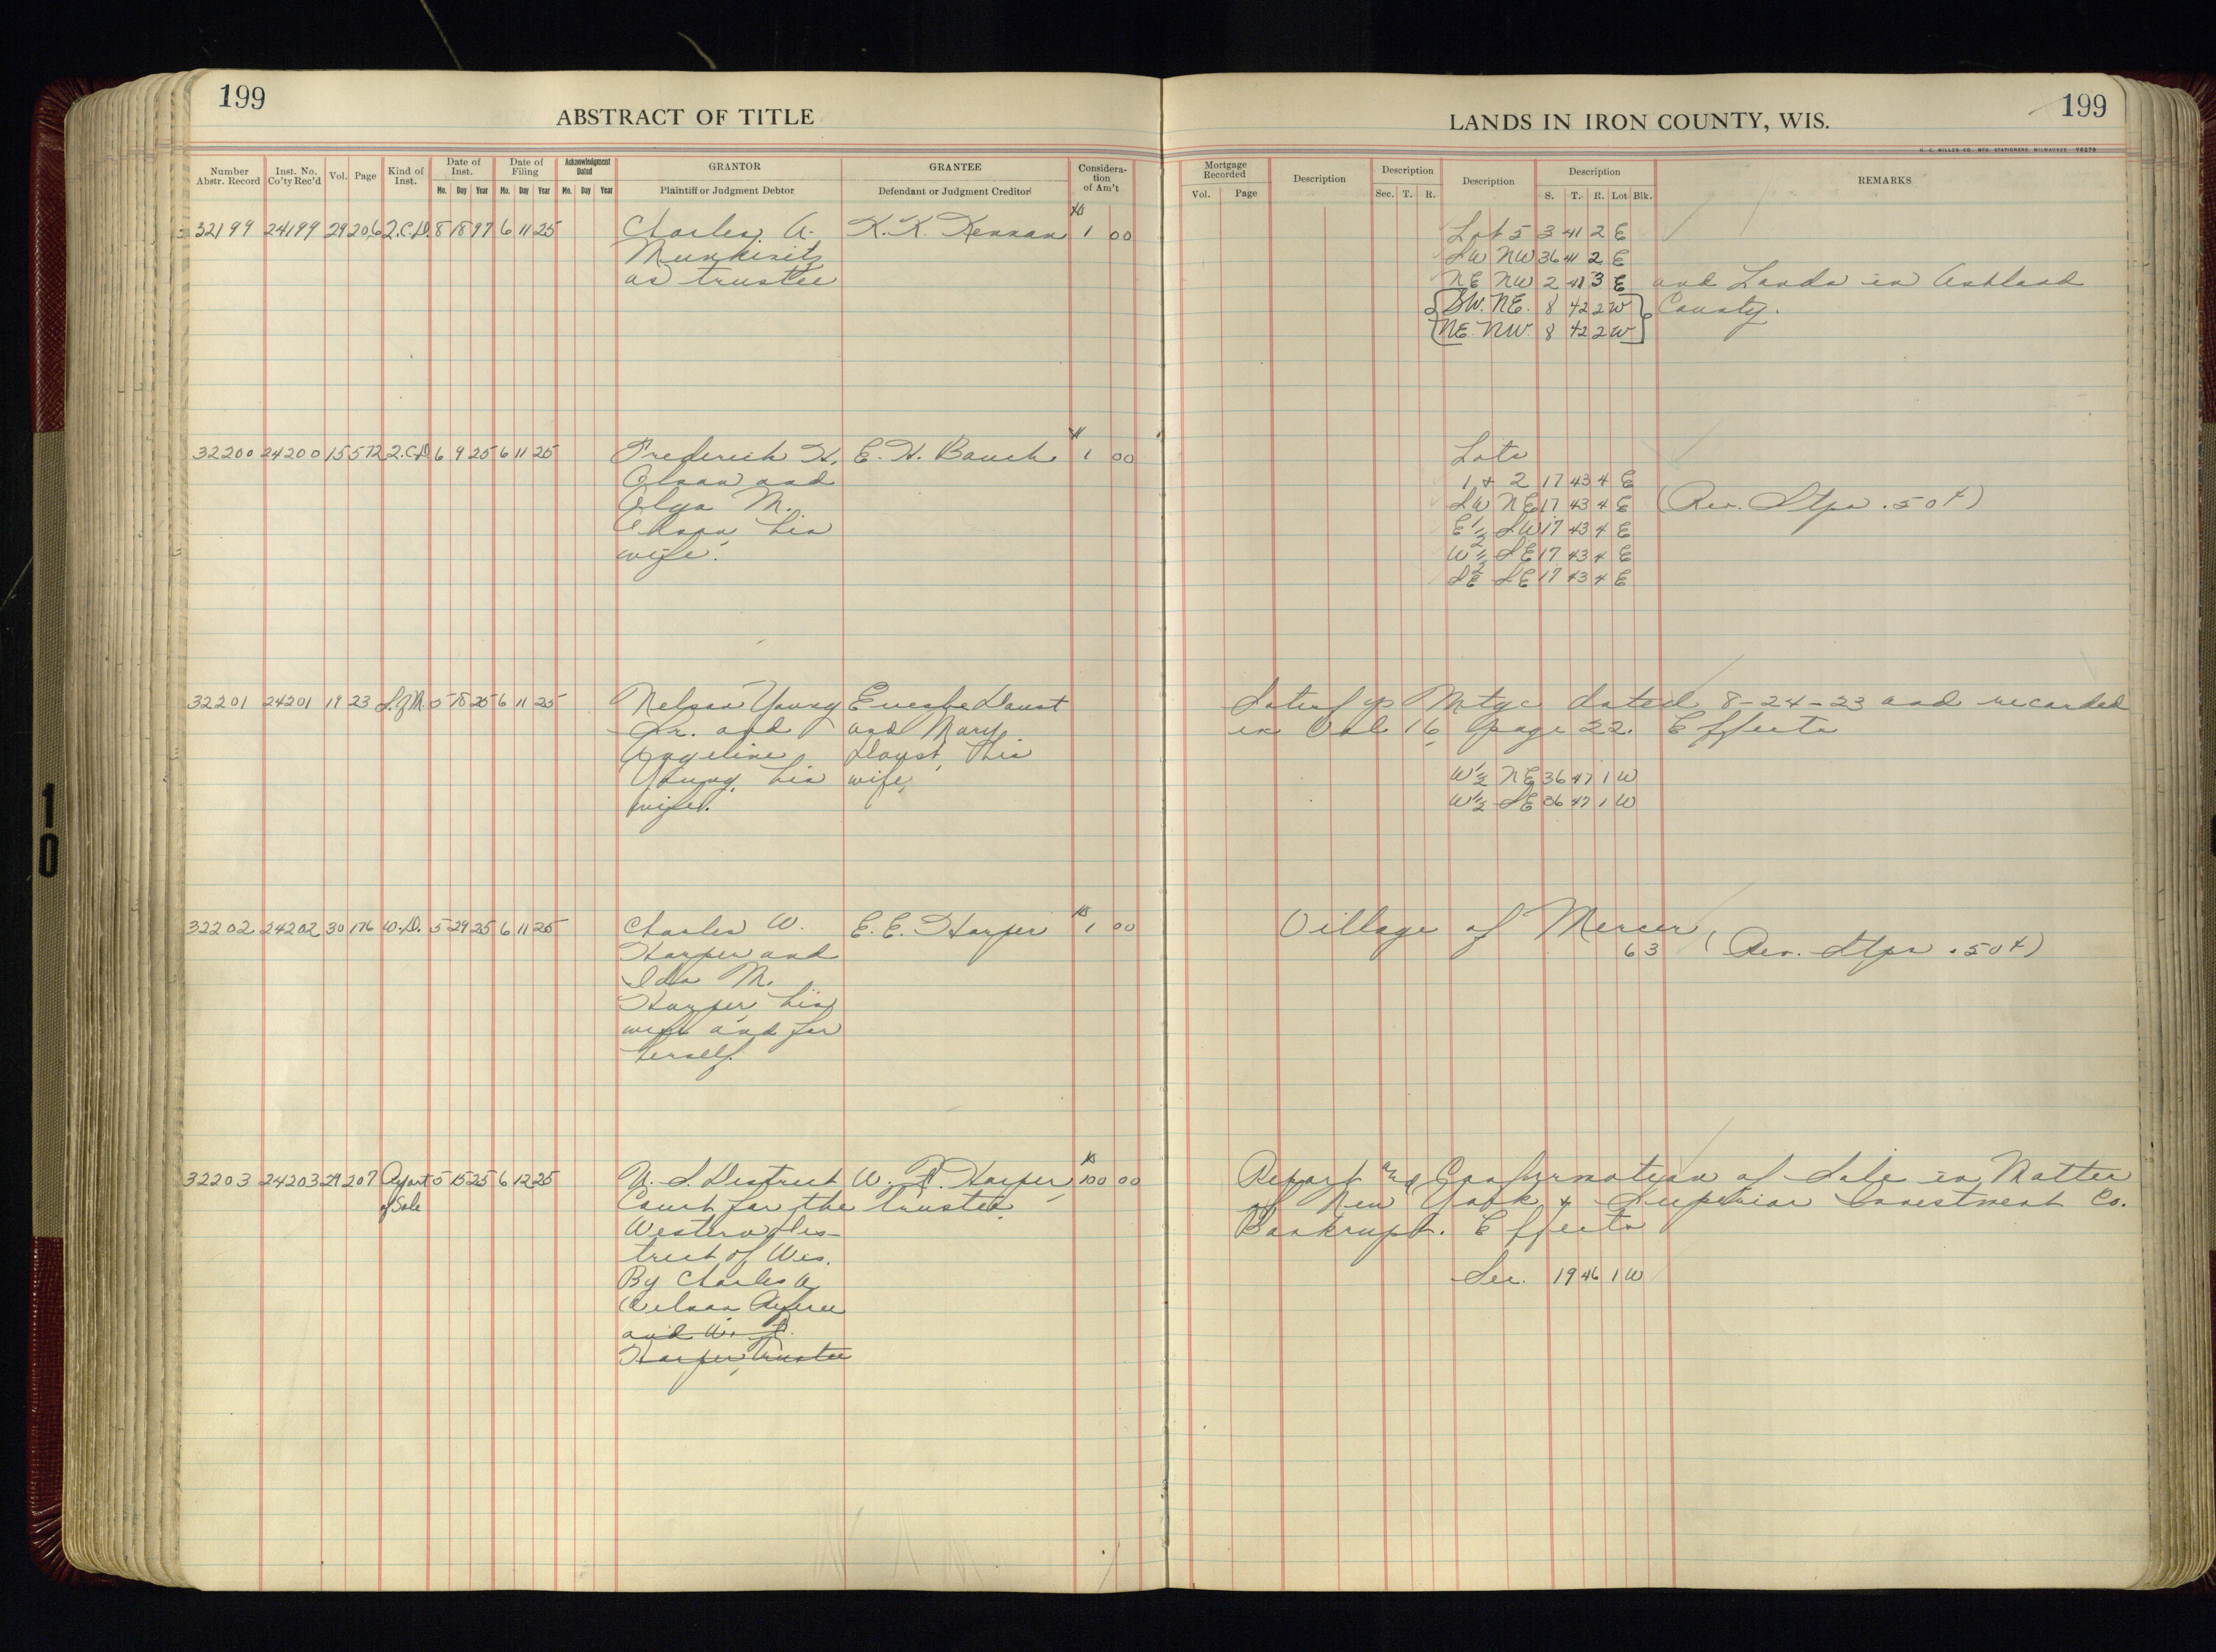 199
ABSTRACT OF TITLE
Number Abstr. Record | Inst. No. Co'ty Rec'd | Vol. | Page | Kind of Inst. | Date of Inst. Mo. Day Year | Date of Filing Mo. Day Year | Acknowledgment Dated Mo. Day Year | GRANTOR Plaintiff or Judgment Debtor | GRANTEE Defendant or Judgment Creditor | Consideration of Am't
32199 24199 29 206 Q.C.D. 8 18 97 6 11 25 Charles A. K. K. Kennan 1 00
Munkwitz
as trustee
32200 24200 15 572 Q.C.D. 6 9 25 6 11 25 Frederick H. E. H. Bauch 1 00
Olson and
Olga M.
Olson, his
wife.
32201 24201 19 23 S.of M. 5 18 25 6 11 25 Nelson Young Eusebe Daust
Sr. and and Mary
Angeline Daust, his
Young, his wife,
wife.
32202 24202 30 176 W.D. 5 29 25 6 11 25 Charles W. E. E. Harper 1 00
Harper and
Ida M.
Harper, his
wife and for
herself.
32203 24203 29 207 Report of Sale 5 15 25 6 12 25 U. S. District W. R. Harper, 100 00
Court for the trustee
Western Dis-
trict of Wis.
By Charles A
Referee
and W. R.
Harper, Trustee
199
LANDS IN IRON COUNTY, WIS.
H. C. MILLER CO. MFG. STATIONERS, MILWAUKEE
Mortgage Recorded Vol. Page | Description | Description Sec. T. R. | Description | Description S. T. R. Lot Blk. | REMARKS
Lot 5 3 41 2 E
SW NW 36 41 2 E
NE NW 2 41 3 E and Lands in Ashland
SW. NE. 8 42 2 W County.
NE NW. 8 42 2 W
Lots
1 + 2 17 43 4 E
SW NE 17 43 4 E (Rev. Stps .50¢)
E 1/2 SW 17 43 4 E
W 1/2 SE 17 43 4 E
SE SE 17 43 4 E
Satisfys Mtge dated 8-24-23 and recorded
in Vol 16 page 22. Effects
W 1/2 NE 36 47 1 W
W 1/2 SE 36 47 1 W
Village of Mercer
6 3 (Rev. Stps .50¢)
Report and Confirmation of Sale in Matter
of New York & Superior Investment Co.
Bankrupt. Effects
Sec. 19 46 1 W
10